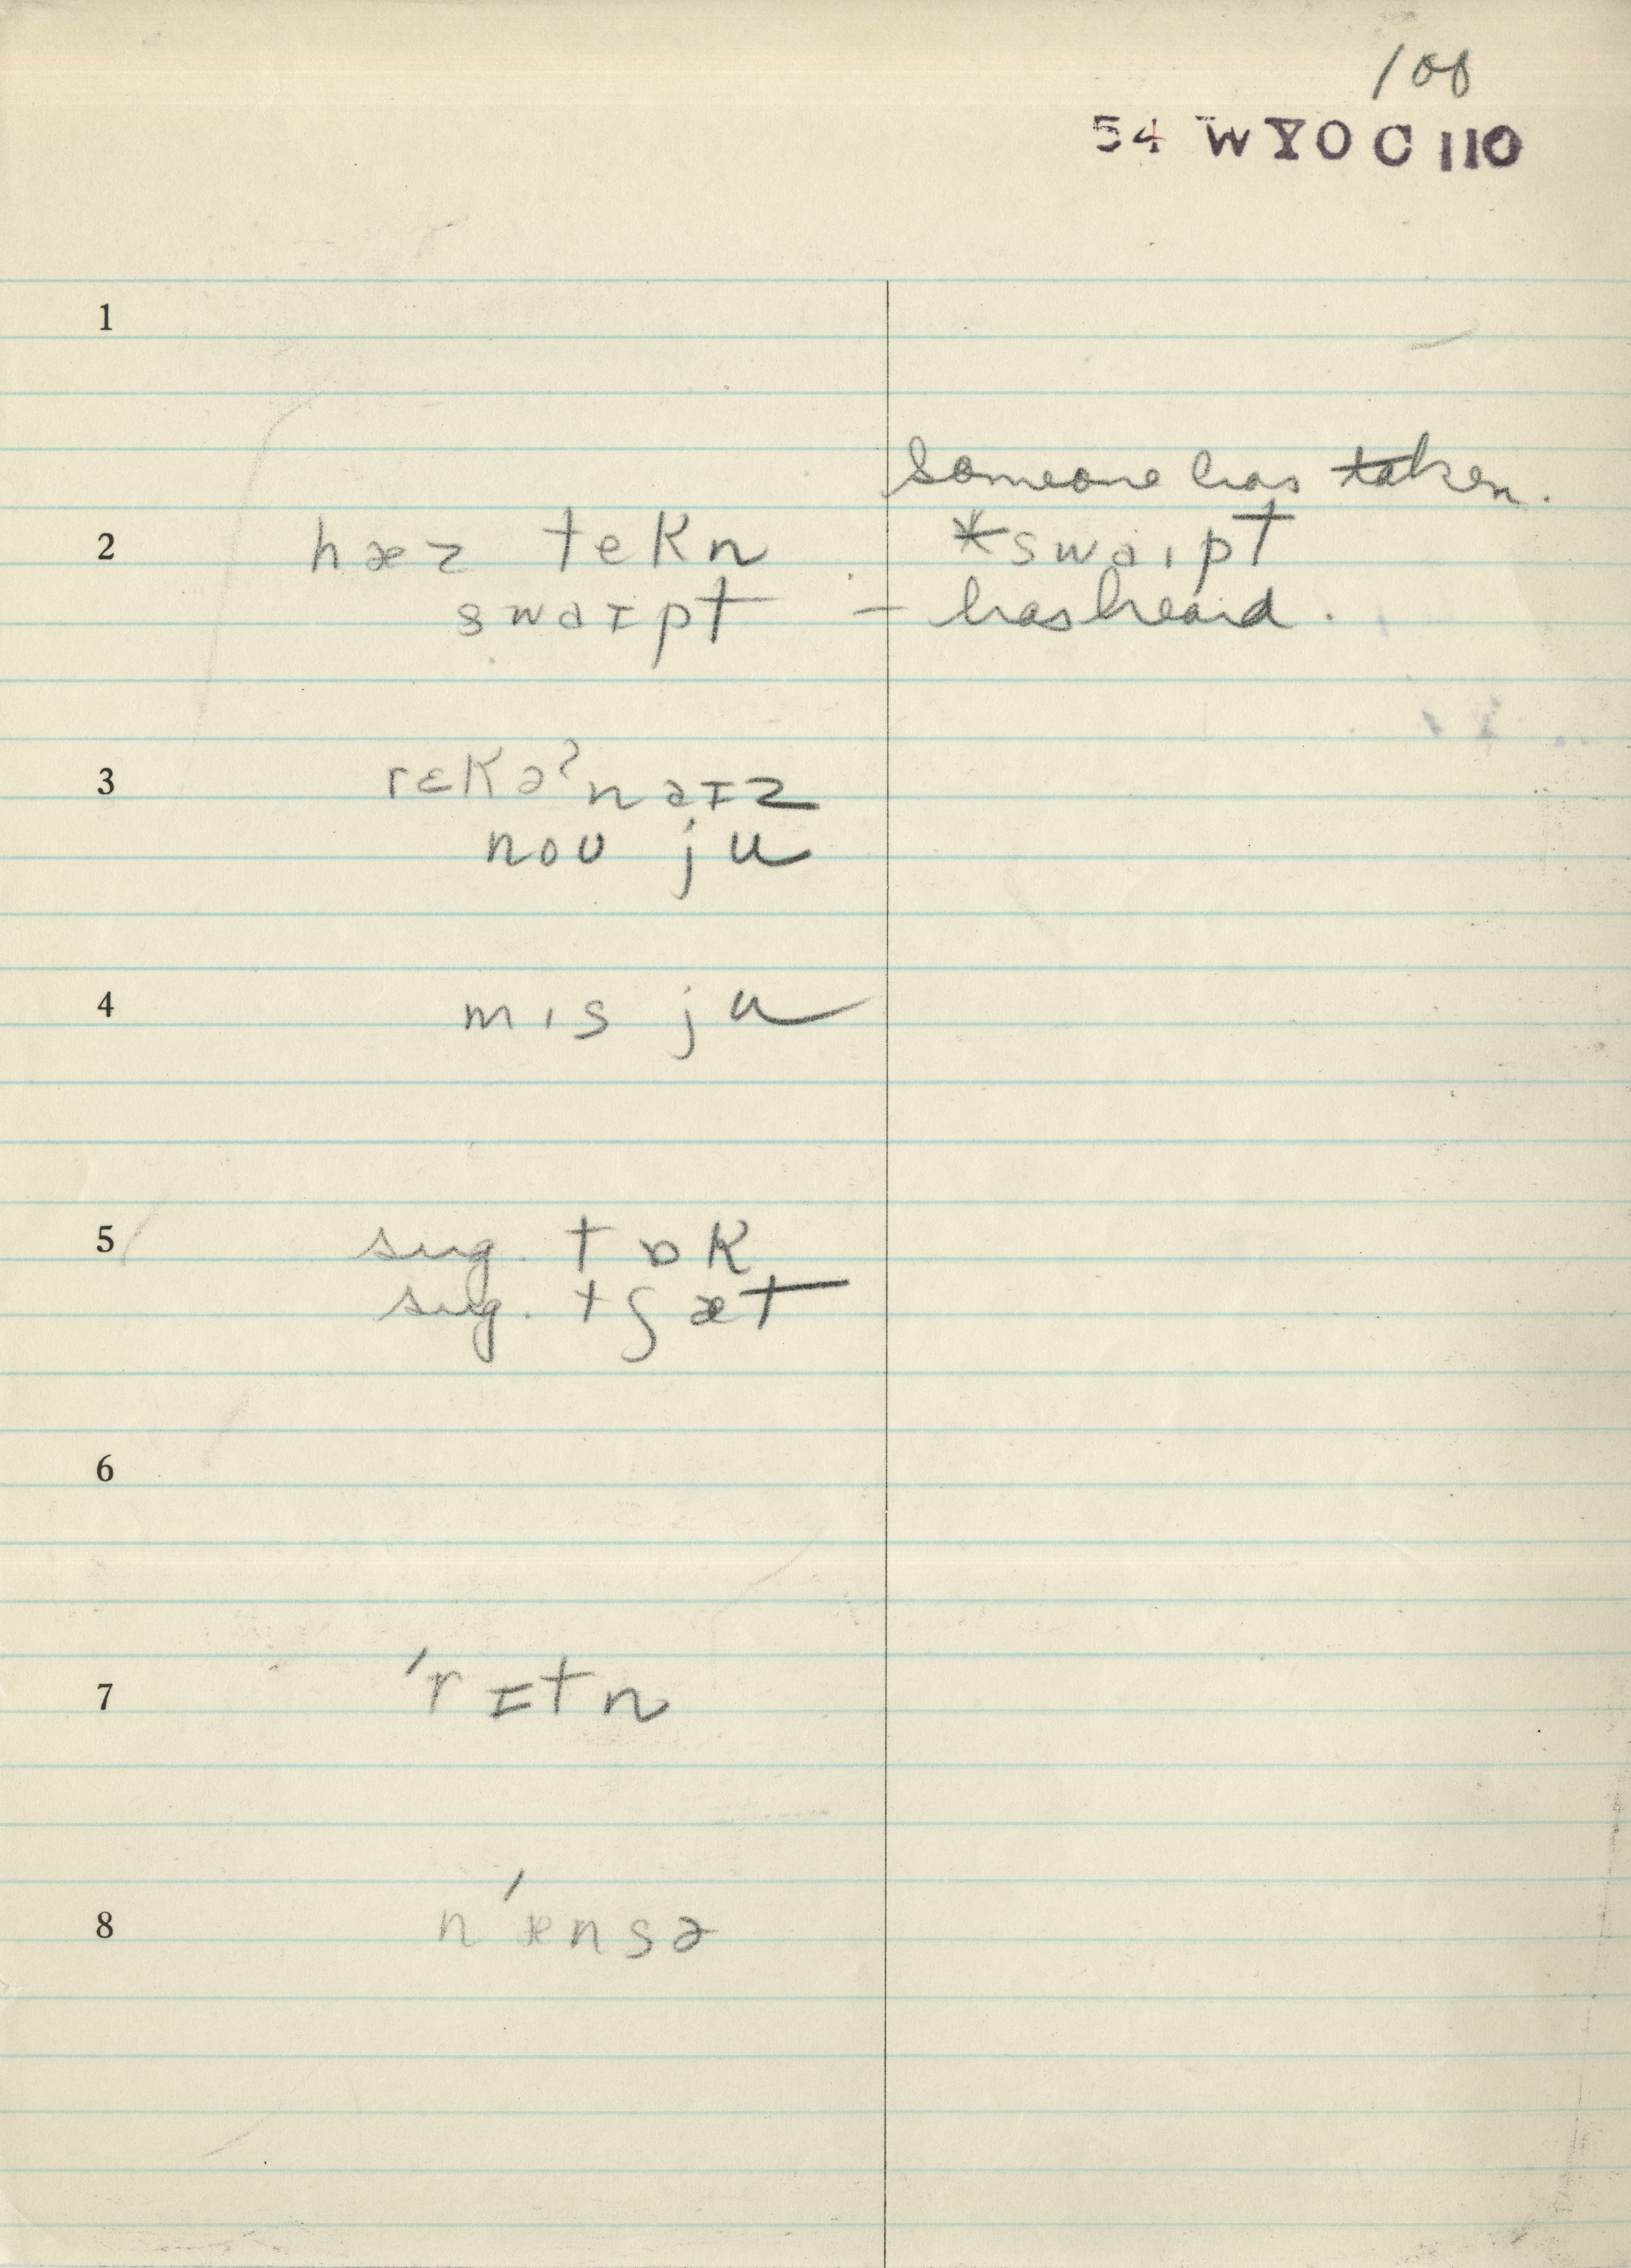 100
54 WYO C 110
1
someone has taken.
2 hæz tekn *swaɪpt
swaɪpt – has heard.
3 rɛkəʔnaɪz
noʊ ju
4 mɪs ju
5 sug. tɒk
sug. tʃæt
6
7 ˈrɪtn
8 n'ænsə